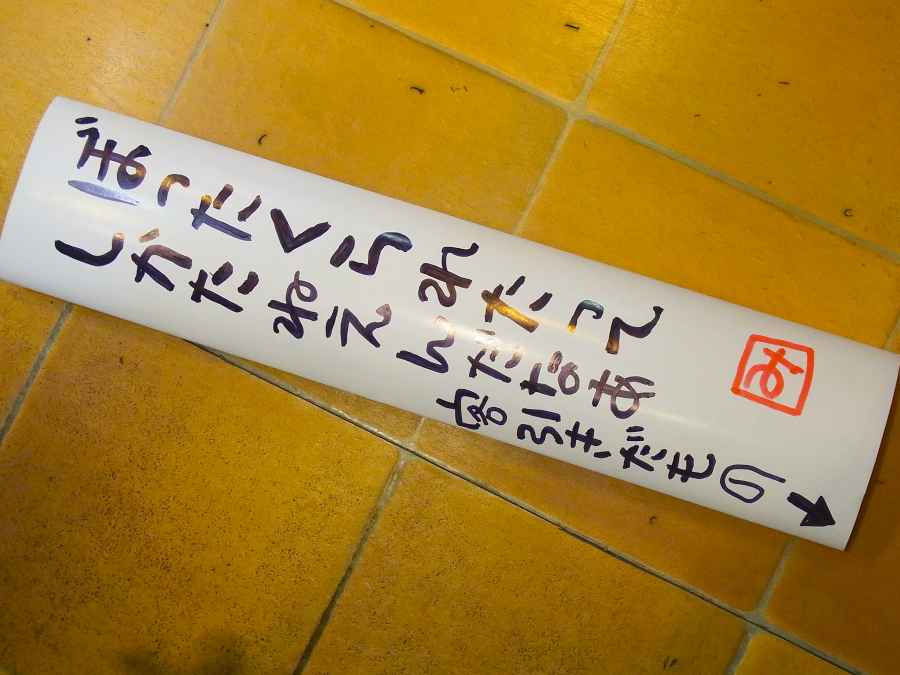 ぼったくられたって
しかたねえんだなあ
客引きだもの
お